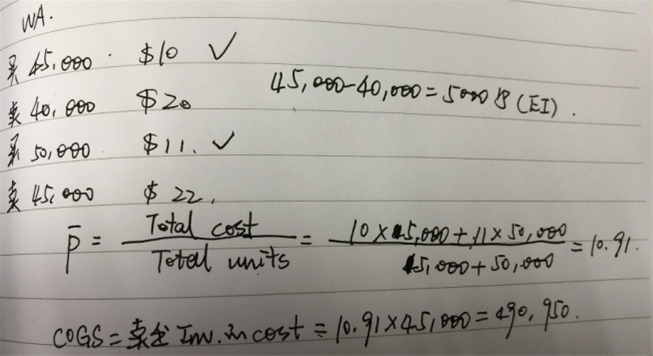 WA.
买 45,000 $10 ✓
卖 40,000 $20
45,000-40,000=5000 (EI).
买 50,000 $11. ✓
卖 45,000 $22.
Total cost 10×5,000+11×50,000
p̄ = = =10.91.
Total units 5,000+50,000
COGS=卖出 Inv. in cost = 10.91×45,000=490,950.